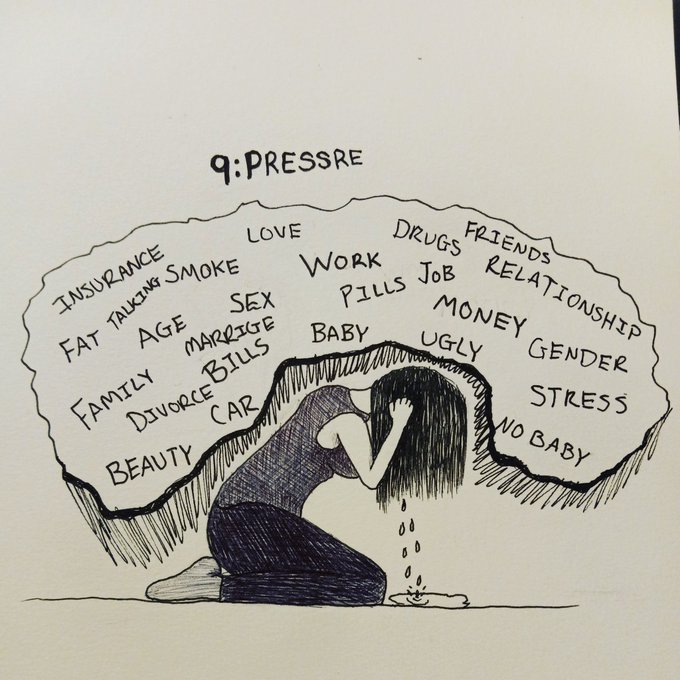 9:PRESSRE
LOVE
DRUGS FRIENDS
INSURANCE
SMOKE
WORK
JOB
RELATIONSHIP
FAT TALKING
AGE
SEX
PILLS
MONEY
MARRIGE
BABY
UGLY
GENDER
FAMILY
DIVORCE
BILLS
STRESS
CAR
NO BABY
BEAUTY